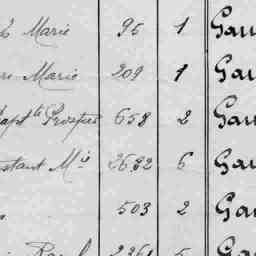 Marie 95 1 Gau
Marie 209 1 Gau
Bapt.te Prosper 658 2 Gau
nstant M.ie 2682 6 Gau
503 2 Gau